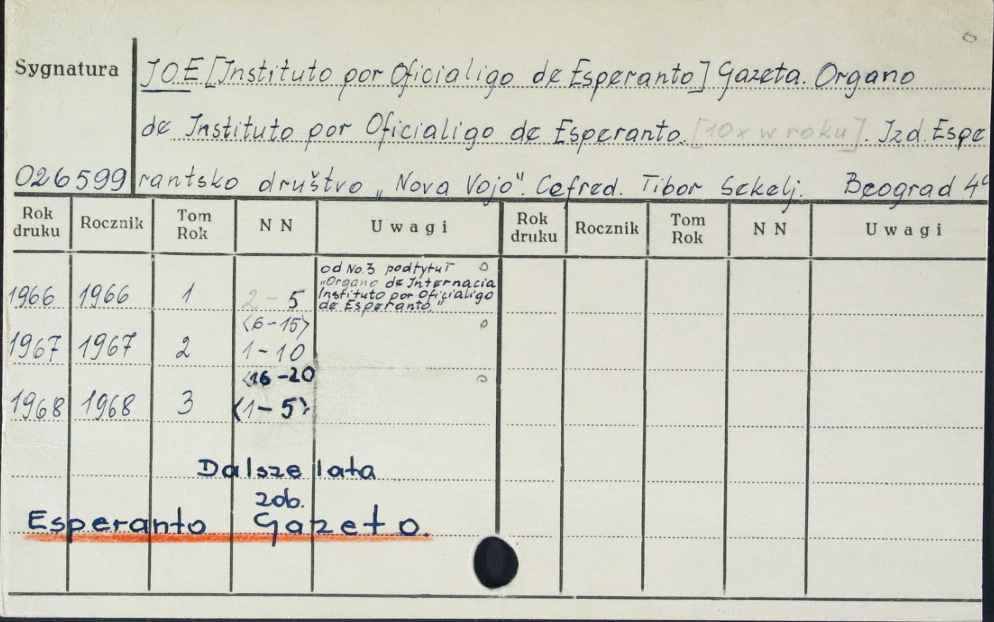 Sygnatura JOE [Instituto por Oficialigo de Esperanto] Gazeta. Organo
de Instituto por Oficialigo de Esperanto. [10x w roku]. Izd. Espe
026599 rantsko društvo „Nova Vojo". Cefred. Tibor Sekelj. Beograd 4°
Rok druku Rocznik Tom Rok N N Uwagi Rok druku Rocznik Tom Rok N N Uwagi
od No.3 podtytuł
„Organo de Internacia
1966 1966 1 2-5 Instituto por Oficialigo
de Esperanto."
<6-15>
1967 1967 2 1-10
<16-20
1968 1968 3 <1-5>
Dalsze lata
zob.
Esperanto Gazeto.